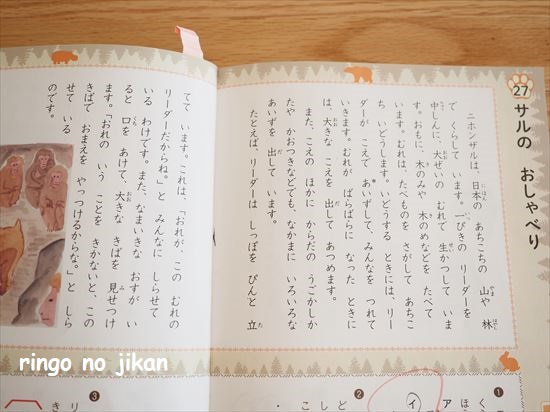 27
サルの おしゃべり
ニホンザルは、日本の あちこちの 山や 林
で くらして います。一ぴきの リーダーを
中しんに、大ぜいの むれで 生かつして いま
す。おもに、木のみや 木のめなどを たべて
います。むれは、たべものを さがして あちこ
ち いどうします。いどうする ときには、リー
ダーが こえで あいずして、みんなを つれて
いきます。むれが ばらばらに なった ときに
は、大きな こえを 出して あつめます。
また、こえの ほかに からだの うごかしか
たや かおつきなどでも、なかまに いろいろな
あいずを 出して います。
たとえば、リーダーは しっぽを ぴんと 立
てて います。これは、「おれが、この むれの
リーダーだからね。」と みんなに しらせて
いる わけです。また、なまいきな おすが い
ると 口を あけて、大きな きばを 見せつけ
ます。「おれの いう ことを きかないと、この
きばで おまえを やっつけるからな。」と しら
せて いる のです。
1
ア
イ
2
3
ringo no jikan